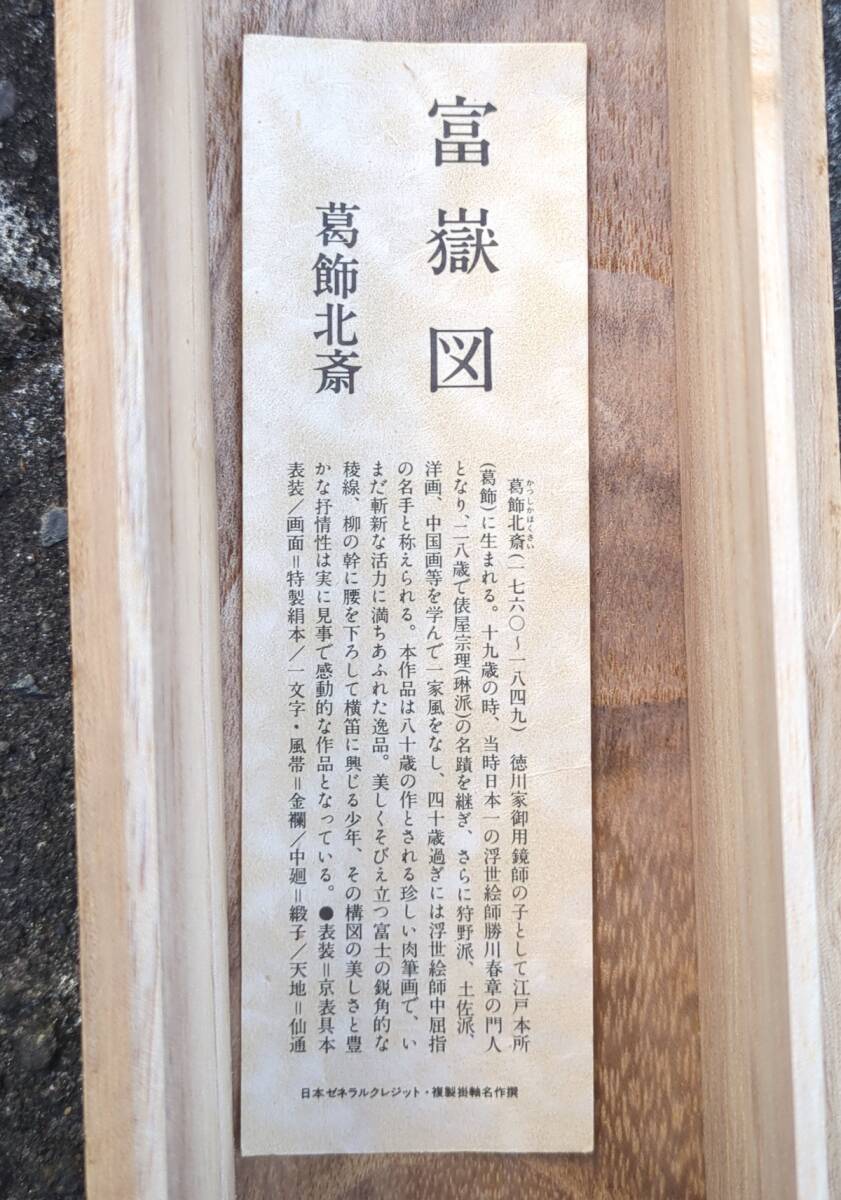 富嶽図
葛飾北斎
葛飾北斎(一七六〇～一八四九)　徳川家御用鏡師の子として江戸本所
かつしかほくさい
(葛飾)に生まれる。十九歳の時、当時日本一の浮世絵師勝川春章の門人
となり、二八歳で俵屋宗理(琳派)の名蹟を継ぎ、さらに狩野派、土佐派、
洋画、中国画等を学んで一家風をなし、四十歳過ぎには浮世絵師中屈指
の名手と称えられる。本作品は八十歳の作とされる珍しい肉筆画で、い
まだ斬新な活力に満ちあふれた逸品。美しくそびえ立つ富士の鋭角的な
稜線、柳の幹に腰を下ろして横笛に興じる少年、その構図の美しさと豊
かな抒情性は実に見事で感動的な作品となっている。●表装＝京表具本
表装／画面＝特製絹本／一文字・風帯＝金襴／中廻＝緞子／天地＝仙通
日本ゼネラルクレジット・複製掛軸名作撰